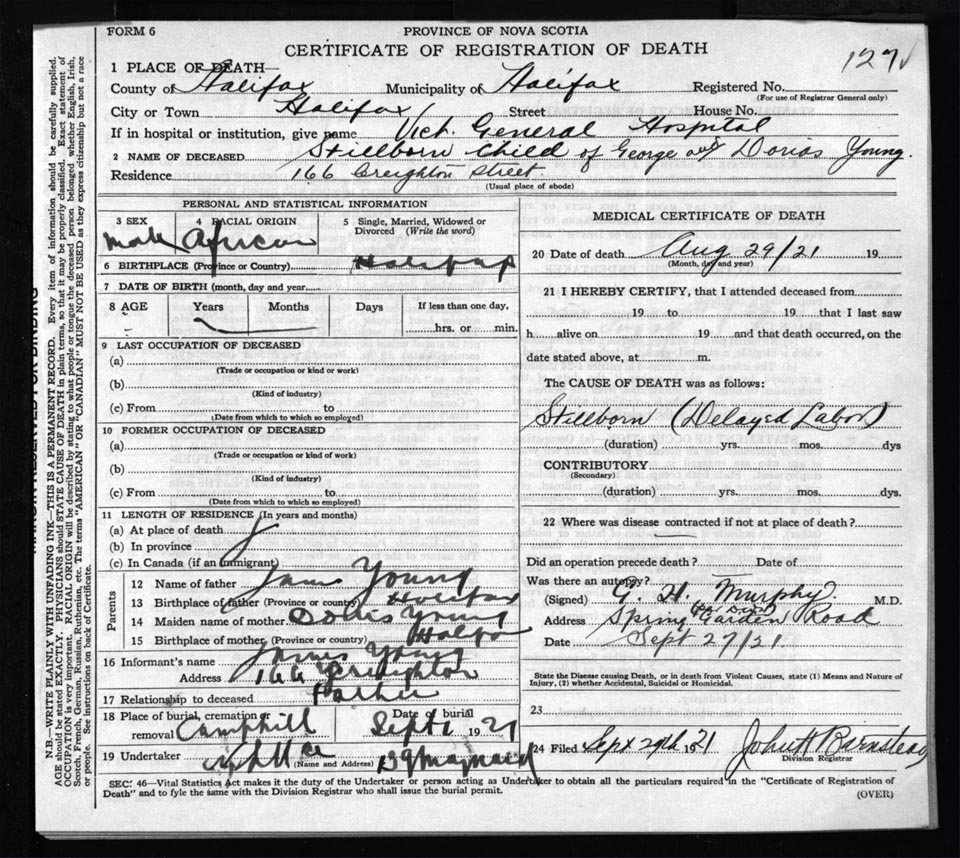 FORM 6
PROVINCE OF NOVA SCOTIA
CERTIFICATE OF REGISTRATION OF DEATH
127
1 PLACE OF DEATH
County of Halifax Municipality of Halifax Registered No.
(For use of Registrar General only)
City or Town Halifax Street House No.
If in hospital or institution, give name Vict. General Hospital
2 NAME OF DECEASED Stillborn Child of George and Dorias Young.
Residence 166 Creighton Street.
(Usual place of abode)
PERSONAL AND STATISTICAL INFORMATION
3 SEX 4 RACIAL ORIGIN 5 Single, Married, Widowed or Divorced (Write the word)
Male African
6 BIRTHPLACE (Province or Country) Halifax
7 DATE OF BIRTH (month, day and year)
8 AGE Years Months Days If less than one day,
hrs. or min.
9 LAST OCCUPATION OF DECEASED
(a)
(Trade or occupation or kind or work)
(b)
(Kind of industry)
(c) From to
(Date from which to which so employed)
10 FORMER OCCUPATION OF DECEASED
(a)
(Trade or occupation or kind of work)
(b)
(Kind of industry)
(c) From to
(Date from which to which so employed)
11 LENGTH OF RESIDENCE (In years and months)
(a) At place of death
(b) In province
(c) In Canada (if an immigrant)
Parents
12 Name of father James Young
13 Birthplace of father (Province or country) Halifax
14 Maiden name of mother Young
15 Birthplace of mother (Province or country)
16 Informant's name James Young
Address 166 Creighton
17 Relationship to deceased Father
18 Place of burial, cremation or removal Camphill Date of burial Sept 1 1921
19 Undertaker (Name and Address) Maynard
MEDICAL CERTIFICATE OF DEATH
20 Date of death Aug 29/21 19
(Month, day and year)
21 I HEREBY CERTIFY, that I attended deceased from
19 to 19 that I last saw
h alive on 19 and that death occurred, on the
date stated above, at m.
The CAUSE OF DEATH was as follows:
Stillborn (Delayed Labor)
(duration) yrs. mos. dys
CONTRIBUTORY
(Secondary)
(duration) yrs. mos. dys.
22 Where was disease contracted if not at place of death?
Did an operation precede death? Date of
Was there an autopsy?
(Signed) G. H. Murphy. M.D.
Address Spring Garden Road
Date Sept 27/21
State the Disease causing Death, or in death from Violent Causes, state (1) Means and Nature of
Injury, (2) whether Accidental, Suicidal or Homicidal.
23
24 Filed Sept 29th 1921 John H Barnstead
Division Registrar
SEC. 46—Vital Statistics Act makes it the duty of the Undertaker or person acting as Undertaker to obtain all the particulars required in the "Certificate of Registration of
Death" and to fyle the same with the Division Registrar who shall issue the burial permit.
(OVER)
MARGIN RESERVED FOR BINDING
N.B.—WRITE PLAINLY WITH UNFADING INK—THIS IS A PERMANENT RECORD. Every item of information should be carefully supplied.
AGE should be stated EXACTLY. PHYSICIANS should STATE CAUSE OF DEATH in plain terms, so that it may be properly classified. Exact statement of
OCCUPATION is very important. RACIAL ORIGIN will be described by stating to what people or tongue the deceased person belonged whether English, Irish,
Scotch, French, German, Russian, Ruthenian, etc. The terms "AMERICAN" OR "CANADIAN" MUST NOT BE USED as they express citizenship but not a race
or people. See instructions on back of Certificate.